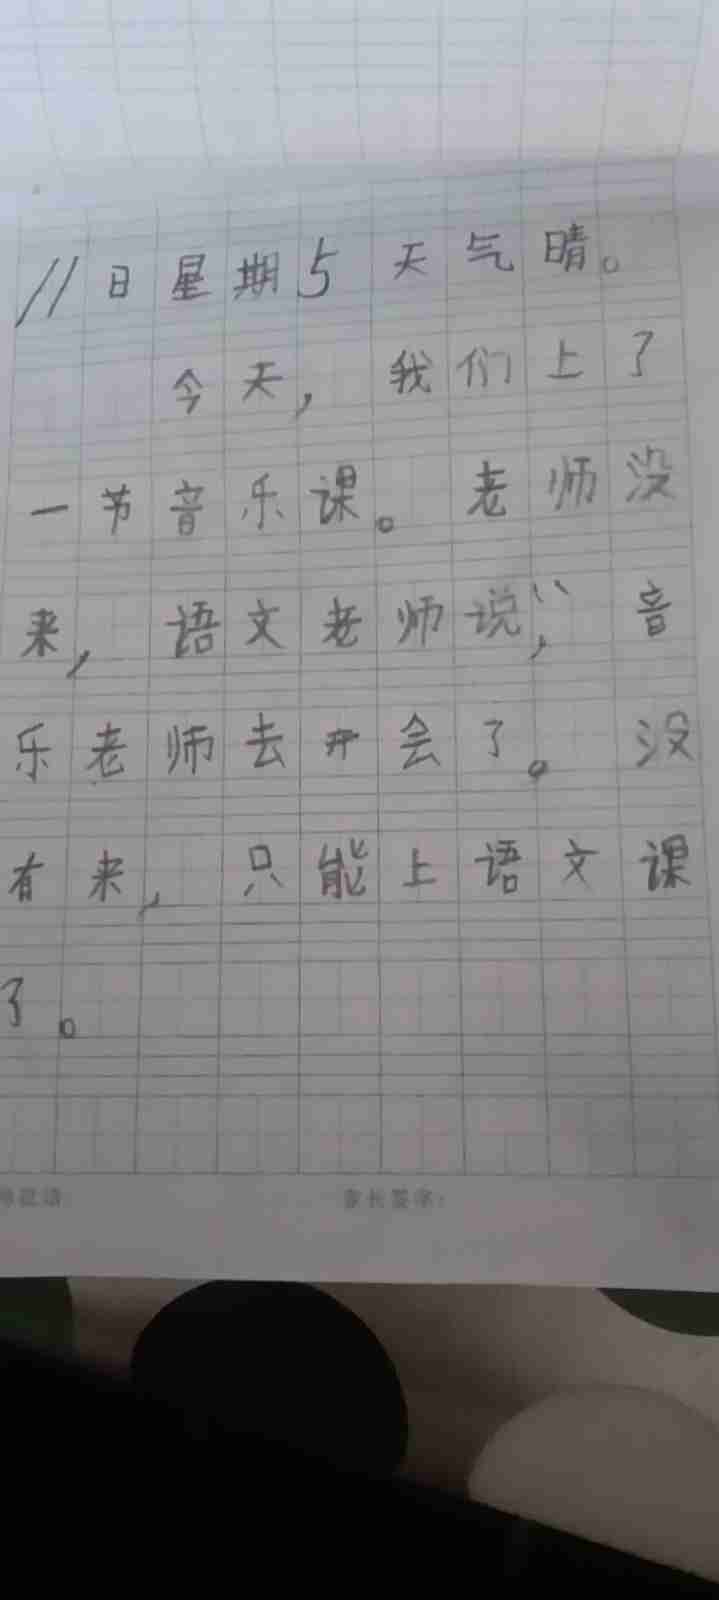 11日星期5天气晴。
今天，我们上了
一节音乐课。老师没
来，语文老师说，“音
乐老师去开会了。没
有来，只能上语文课
了。
家长签字：